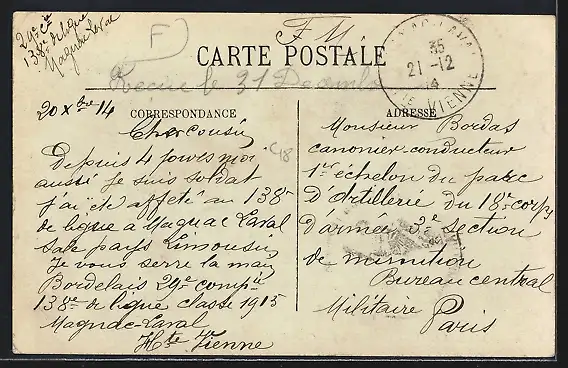 29e Cie
138e de ligne
Magnac Laval
F M
F
CARTE POSTALE
MAGNAC-LAVAL
35
21-12
14
HTE VIENNE
Recue le 31 Decembre
20 Xbre 14
CORRESPONDANCE
ADRESSE
Cher cousin
C18
Depuis 4 jours moi
aussi je suis soldat
j'ai été affeté au 138e
de ligne a Magnac Laval
Sale pays Limousin
Je vous serre la main
Bordelais 29e compie
138e de ligne classe 1915
Magnac-Laval
Hte Vienne
Monsieur Bordas
canonier-conducteur
1er échelon du parc
d'Artillerie du 18e corps
d'armée 3e section
de munition
Bureau central
Militaire Paris